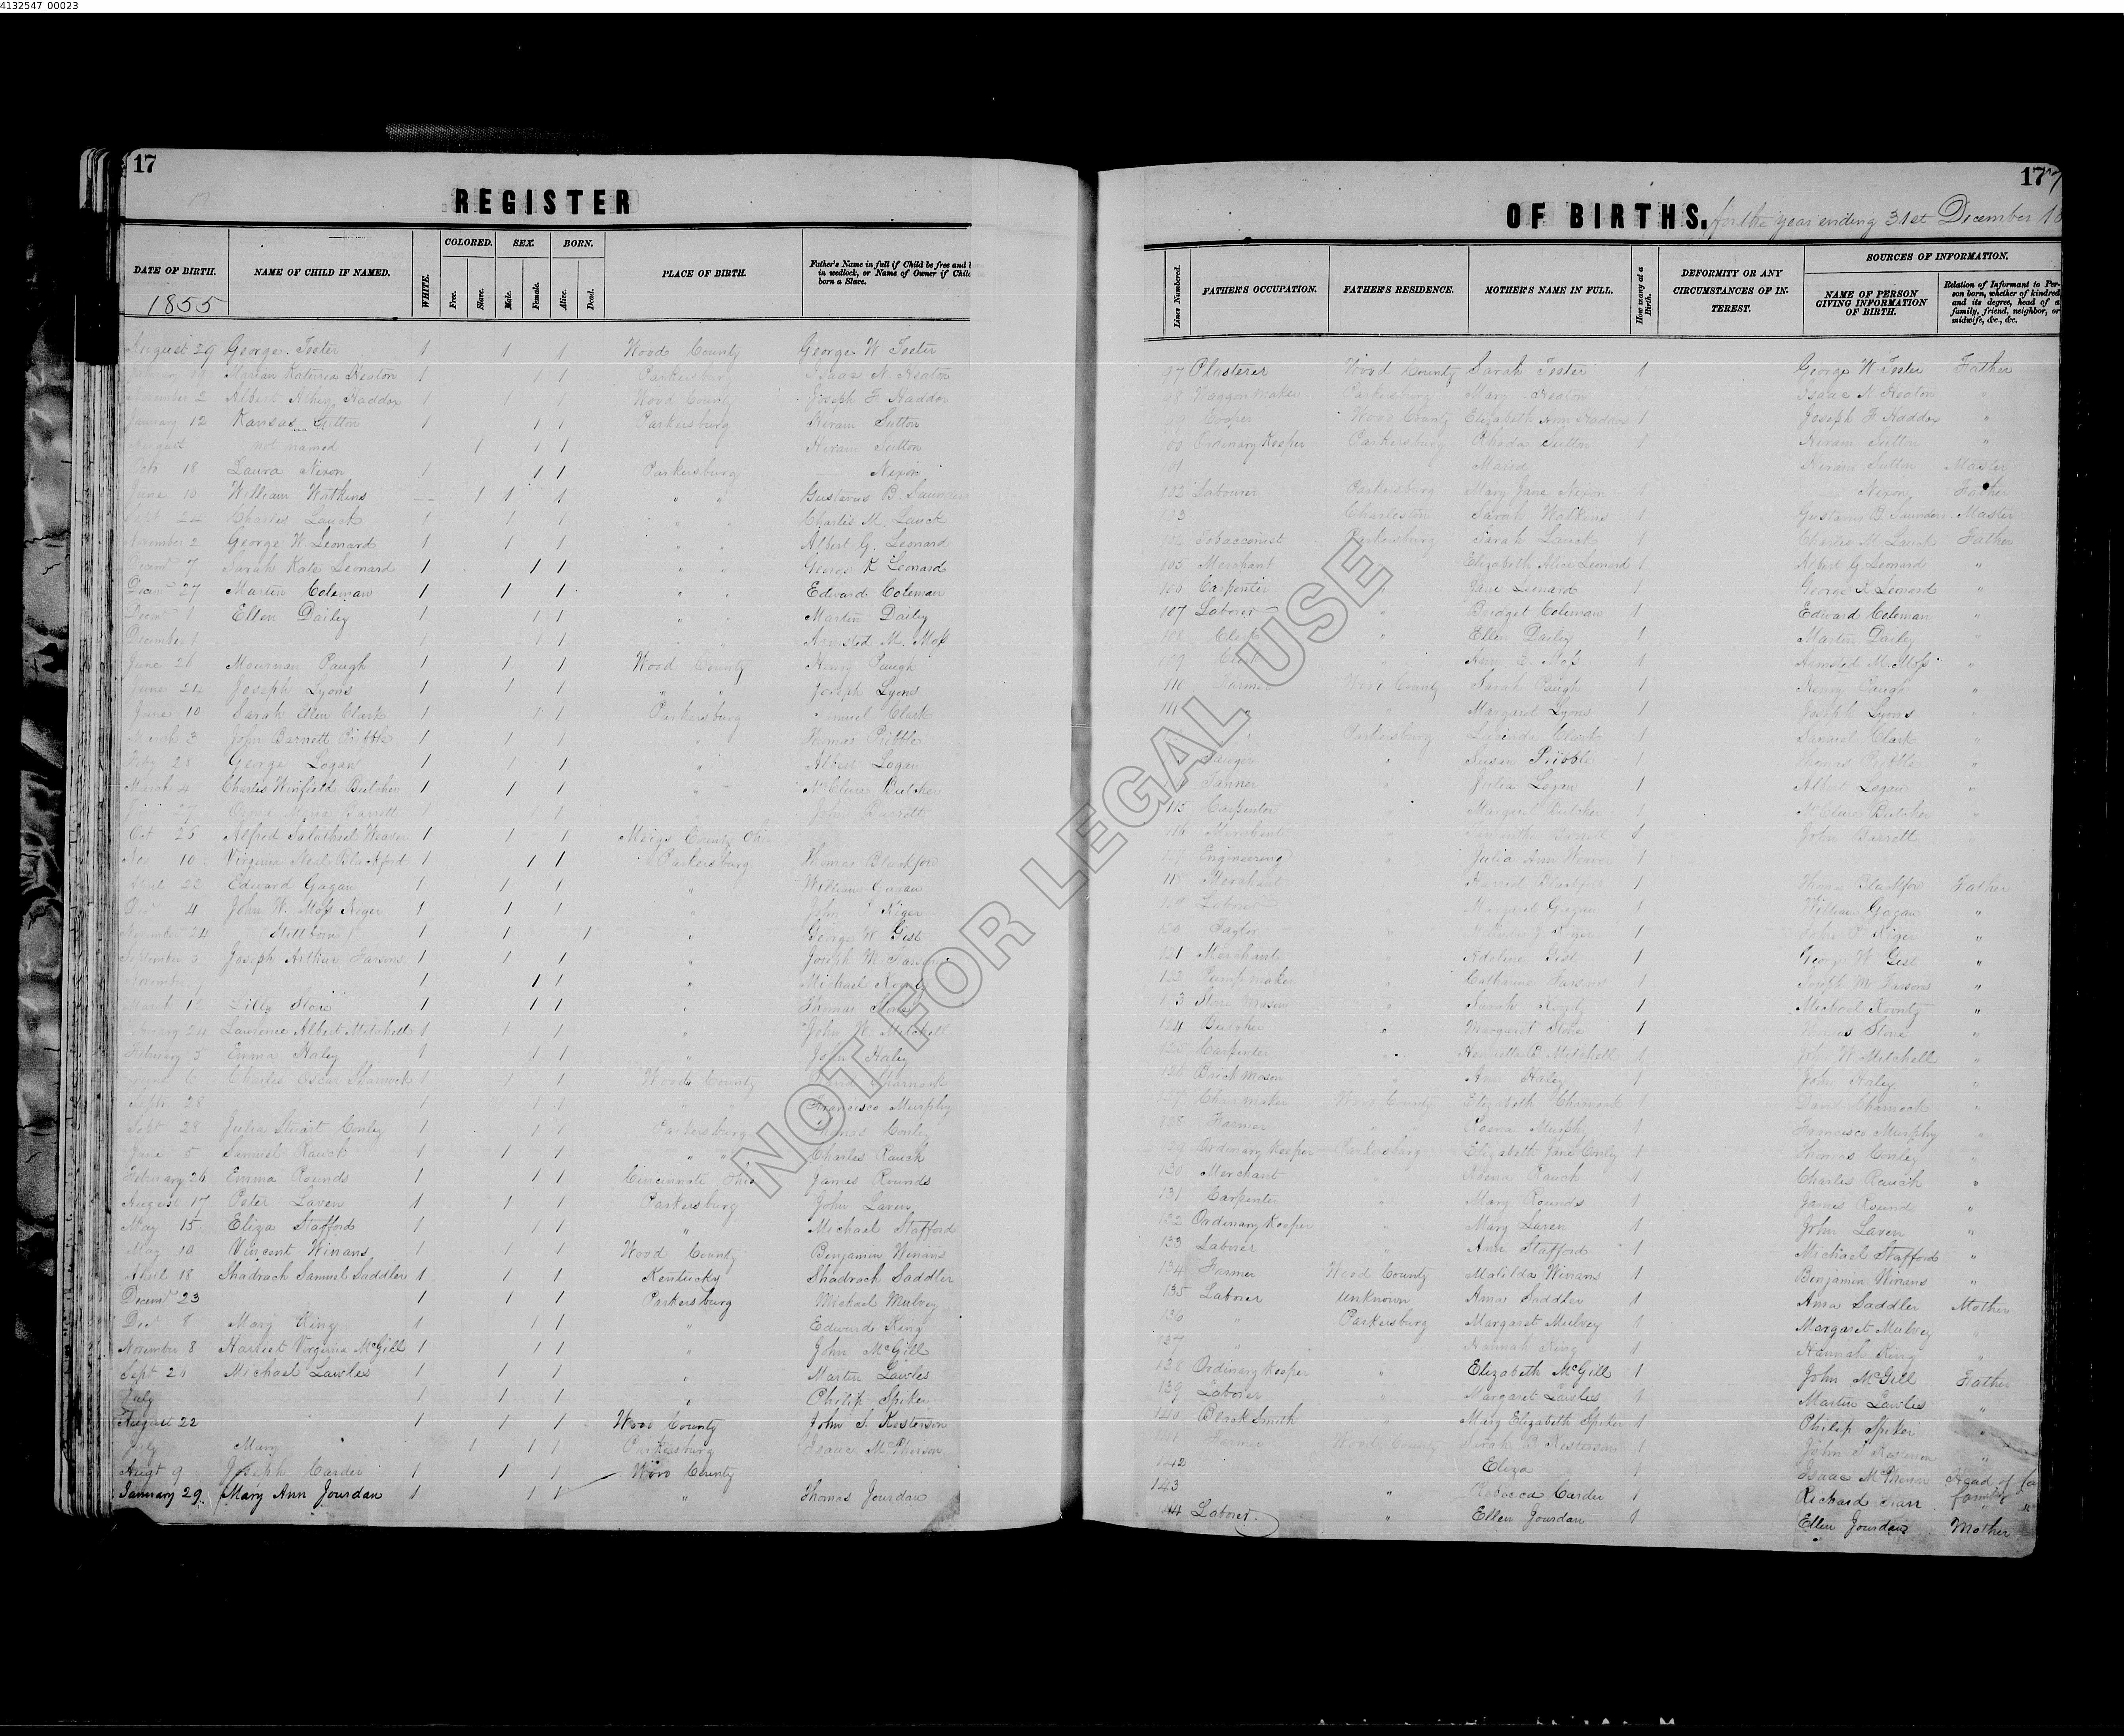 4132547_00023
17
REGISTER
DATE OF BIRTH. NAME OF CHILD IF NAMED. WHITE. COLORED. Free. Slave. SEX. Male. Female. BORN. Alive. Dead. PLACE OF BIRTH. Father's Name in full if Child be free and in wedlock, or Name of Owner if Child born a Slave.
1855
August 29 George Foster 1 1 1 Wood County George W Foster
Parkersburg
November 2 Wood County Joseph F Haddox
January 12 Kansas 1 1 1 Parkersburg Hiram Sutton
August not named 1 1 1 Hiram Sutton
Oct 18 Laura Nixon 1 1 1 Parkersburg Nixon
June 10 William Watkins 1 1 1 " " Gustavus B. Saunders
Sept 24 Charles Lauck 1 1 1 " " Charles M. Lauck
November 2 George W Leonard 1 1 1 " " Albert G. Leonard
7 Sarah Kate Leonard 1 1 1 " " George K Leonard
27 Martin Coleman 1 1 1 " " Edward Coleman
1 Ellen Dailey 1 1 1 " " Martin Dailey
December 1 1 1 1 " " M. Moss
June 26 Paugh 1 1 1 Wood County Henry Paugh
June 24 Joseph Lyons 1 1 1 " " Joseph Lyons
June 10 Sarah Ellen Clark 1 1 1 Parkersburg Samuel Clark
March 3 John Barnett Pribble 1 1 1 " Thomas Pribble
Feby 28 George Logan 1 1 1 " Albert Logan
March 4 Charles Winfield Butcher 1 1 1 " McClure Butcher
27 Barrett 1 1 1 John Barrett
Oct 25 Alfred Salathiel Weaver 1 1 1 Meigs County
Nov 10 Virginia Neal Blackford 1 1 1 Parkersburg Thomas Blackford
April 22 Edward Gagan 1 1 1 " William Gagan
4 John W. Moss Kiger 1 1 1 " John Kiger
November 24 Stillborn 1 1 1 " George W Gist
September 5 Joseph Arthur Parsons 1 1 1 " Joseph M Parsons
November 1 1 1 1 " Michael
March 12 Lilly Stone 1 1 1 " Thomas Stone
24 Laurence Albert Mitchell 1 1 1 John W. Mitchell
February 5 Emma Haley 1 1 1 " John Haley
June 6 Charles Oscar 1 1 1 Wood County
Sept 28 1 1 1 Francisco Murphy
Sept 28 Julia Stuart Conley 1 1 1 Parkersburg Thomas Conley
June 5 Samuel Rauch 1 1 1 " " Charles Rauch
February 26 Emma Rounds 1 1 1 Cincinnati Ohio James Rounds
August 17 Peter Laven 1 1 1 Parkersburg John Laven
May 15 Eliza Stafford 1 1 1 " Michael Stafford
May 10 Vincent Winans 1 1 1 Wood County Benjamin Winans
April 18 Shadrach Samuel Saddler 1 1 1 Kentucky Shadrach Saddler
23 1 1 1 Parkersburg Michael Mulvey
8 Mary King 1 1 1 " Edward King
November 8 Harriet Virginia McGill 1 1 1 " John McGill
Sept 26 Michael Lawles 1 1 1 " Martin Lawles
July 1 1 1 " Philip Spiker
August 22 1 1 1 Wood County John S. Kesterson
July Mary 1 1 1 Parkersburg Isaac McPherson
Augt 9 Joseph Carder 1 1 1 Wood County
January 29. Mary Ann Jourdan 1 1 1 " Thomas Jourdan
177
OF BIRTHS. for the year ending 31st December 18
Lines Numbered. FATHER'S OCCUPATION. FATHER'S RESIDENCE. MOTHER'S NAME IN FULL. How many at a Birth. DEFORMITY OR ANY CIRCUMSTANCES OF INTEREST. SOURCES OF INFORMATION. NAME OF PERSON GIVING INFORMATION OF BIRTH. Relation of Informant to Person born, whether of kindred and its degree, head of a family, friend, neighbor, or midwife, &c., &c.
97 Plasterer Wood County Sarah Foster 1 George W. Foster Father
98 Waggon Maker Parkersburg Mary Isaac N "
99 Cooper Wood County Elizabeth Ann Haddox 1 Joseph F Haddox "
100 Ordinary Keeper Parkersburg Rhoda Sutton 1 Hiram Sutton "
101 1 Hiram Sutton Master
102 Labourer Parkersburg Mary Jane Nixon 1 Nixon Father
103 Charleston Sarah Watkins 1 Gustavus B. Saunders Master
104 Tobacconist Parkersburg Sarah Lauck 1 Charles M. Lauck Father
105 Merchant " Elizabeth Alice Leonard 1 Albert G Leonard "
106 Carpenter " Jane Leonard 1 George K Leonard "
107 Laborer " Bridget Coleman 1 Edward Coleman "
108 Clerk " Ellen Dailey 1 Martin Dailey "
109 Clerk " Ann E. Moss 1 M. Moss "
110 Farmer Wood County Sarah Paugh 1 Henry Paugh "
111 " " Margaret Lyons 1 Joseph Lyons "
" Parkersburg Lucinda Clark 1 Samuel Clark "
Sawyer " Susan Pribble 1 Thomas Pribble "
Tanner " Julia Logan 1 Albert Logan "
115 Carpenter " Margaret Butcher 1 McClure Butcher "
116 Merchant " Barrett 1 John Barrett "
117 Engineering " Julia Ann Weaver 1
118 Merchant Harriet Blackford 1 Thomas Blackford Father
119 Laborer " Margaret Gagan 1 William Gagan "
120 Taylor " Kiger 1 John Kiger "
121 Merchant " Adeline Gist 1 George W Gist "
122 Pump maker " Catharine Parsons 1 Joseph M Parsons "
123 Stone Mason " Sarah 1 Michael "
124 Butcher " Margaret Stone 1 Thomas Stone "
125 Carpenter " Henrietta B Mitchell 1 John W Mitchell "
126 Brick Mason " Ann Haley 1 John Haley "
127 Chairmaker Wood County Elizabeth Charnock 1 David Charnock "
128 Farmer " " Murphy 1 Francisco Murphy "
129 Ordinary Keeper Parkersburg Elizabeth Jane Conley 1 Thomas Conley "
130 Merchant " Rauch 1 Charles Rauch "
131 Carpenter " Mary Rounds 1 James Rounds "
132 Ordinary Keeper " Mary Laven 1 John Laven "
133 Laborer " Ann Stafford 1 Michael Stafford "
134 Farmer Wood County Matilda Winans 1 Benjamin Winans "
135 Laborer unknown Anna Saddler 1 Anna Saddler Mother
136 " Parkersburg Margaret Mulvey 1 Margaret Mulvey "
137 " " Hannah King 1 Hannah King "
138 Ordinary Keeper " Elizabeth McGill 1 John McGill Father
139 Laborer " Margaret Lawles 1 Martin Lawles "
140 Black Smith Mary Elizabeth Spiker 1 Philip Spiker "
141 Farmer Wood County Sarah Kesterson 1 John S Kesterson "
142 Eliza 1 Isaac McPherson Head of fa
143 " Rebecca Carder 1 Richard family "
144 Laborer " Ellen Jourdan 1 Ellen Jourdan Mother
NOT FOR LEGAL USE